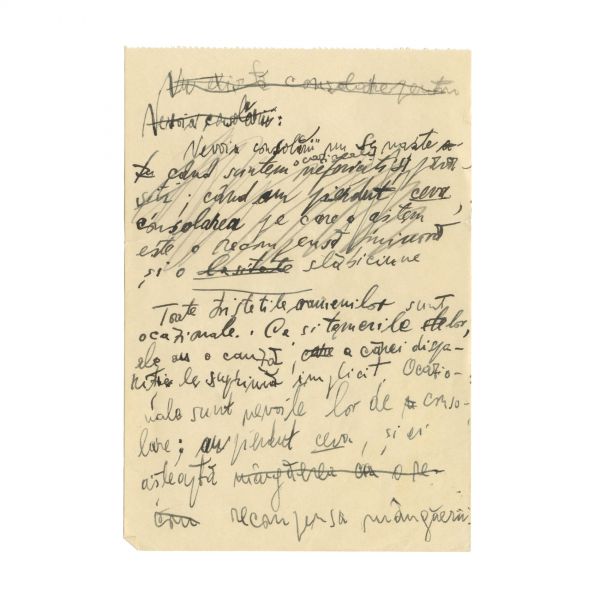 consolare pentru
Nevoia consolării:
Nevoia consolării nu se naște
când suntem ocazional pără-
siți; când am pierdut ceva,
consolarea pe care o aștem
este o recompensă minoră
și o lașitate slăbiciune
Toate tristețile oamenilor sunt
ocazionale. Ca si temerile lor,
ele au o cauză, a cărei dispa-
riție le suprimă implicit. Ocazio-
nale sunt nevoile lor de conso-
lare; au pierdut ceva, și ei
așteaptă mângâerea ca o re-
com recompensa mângâerii.